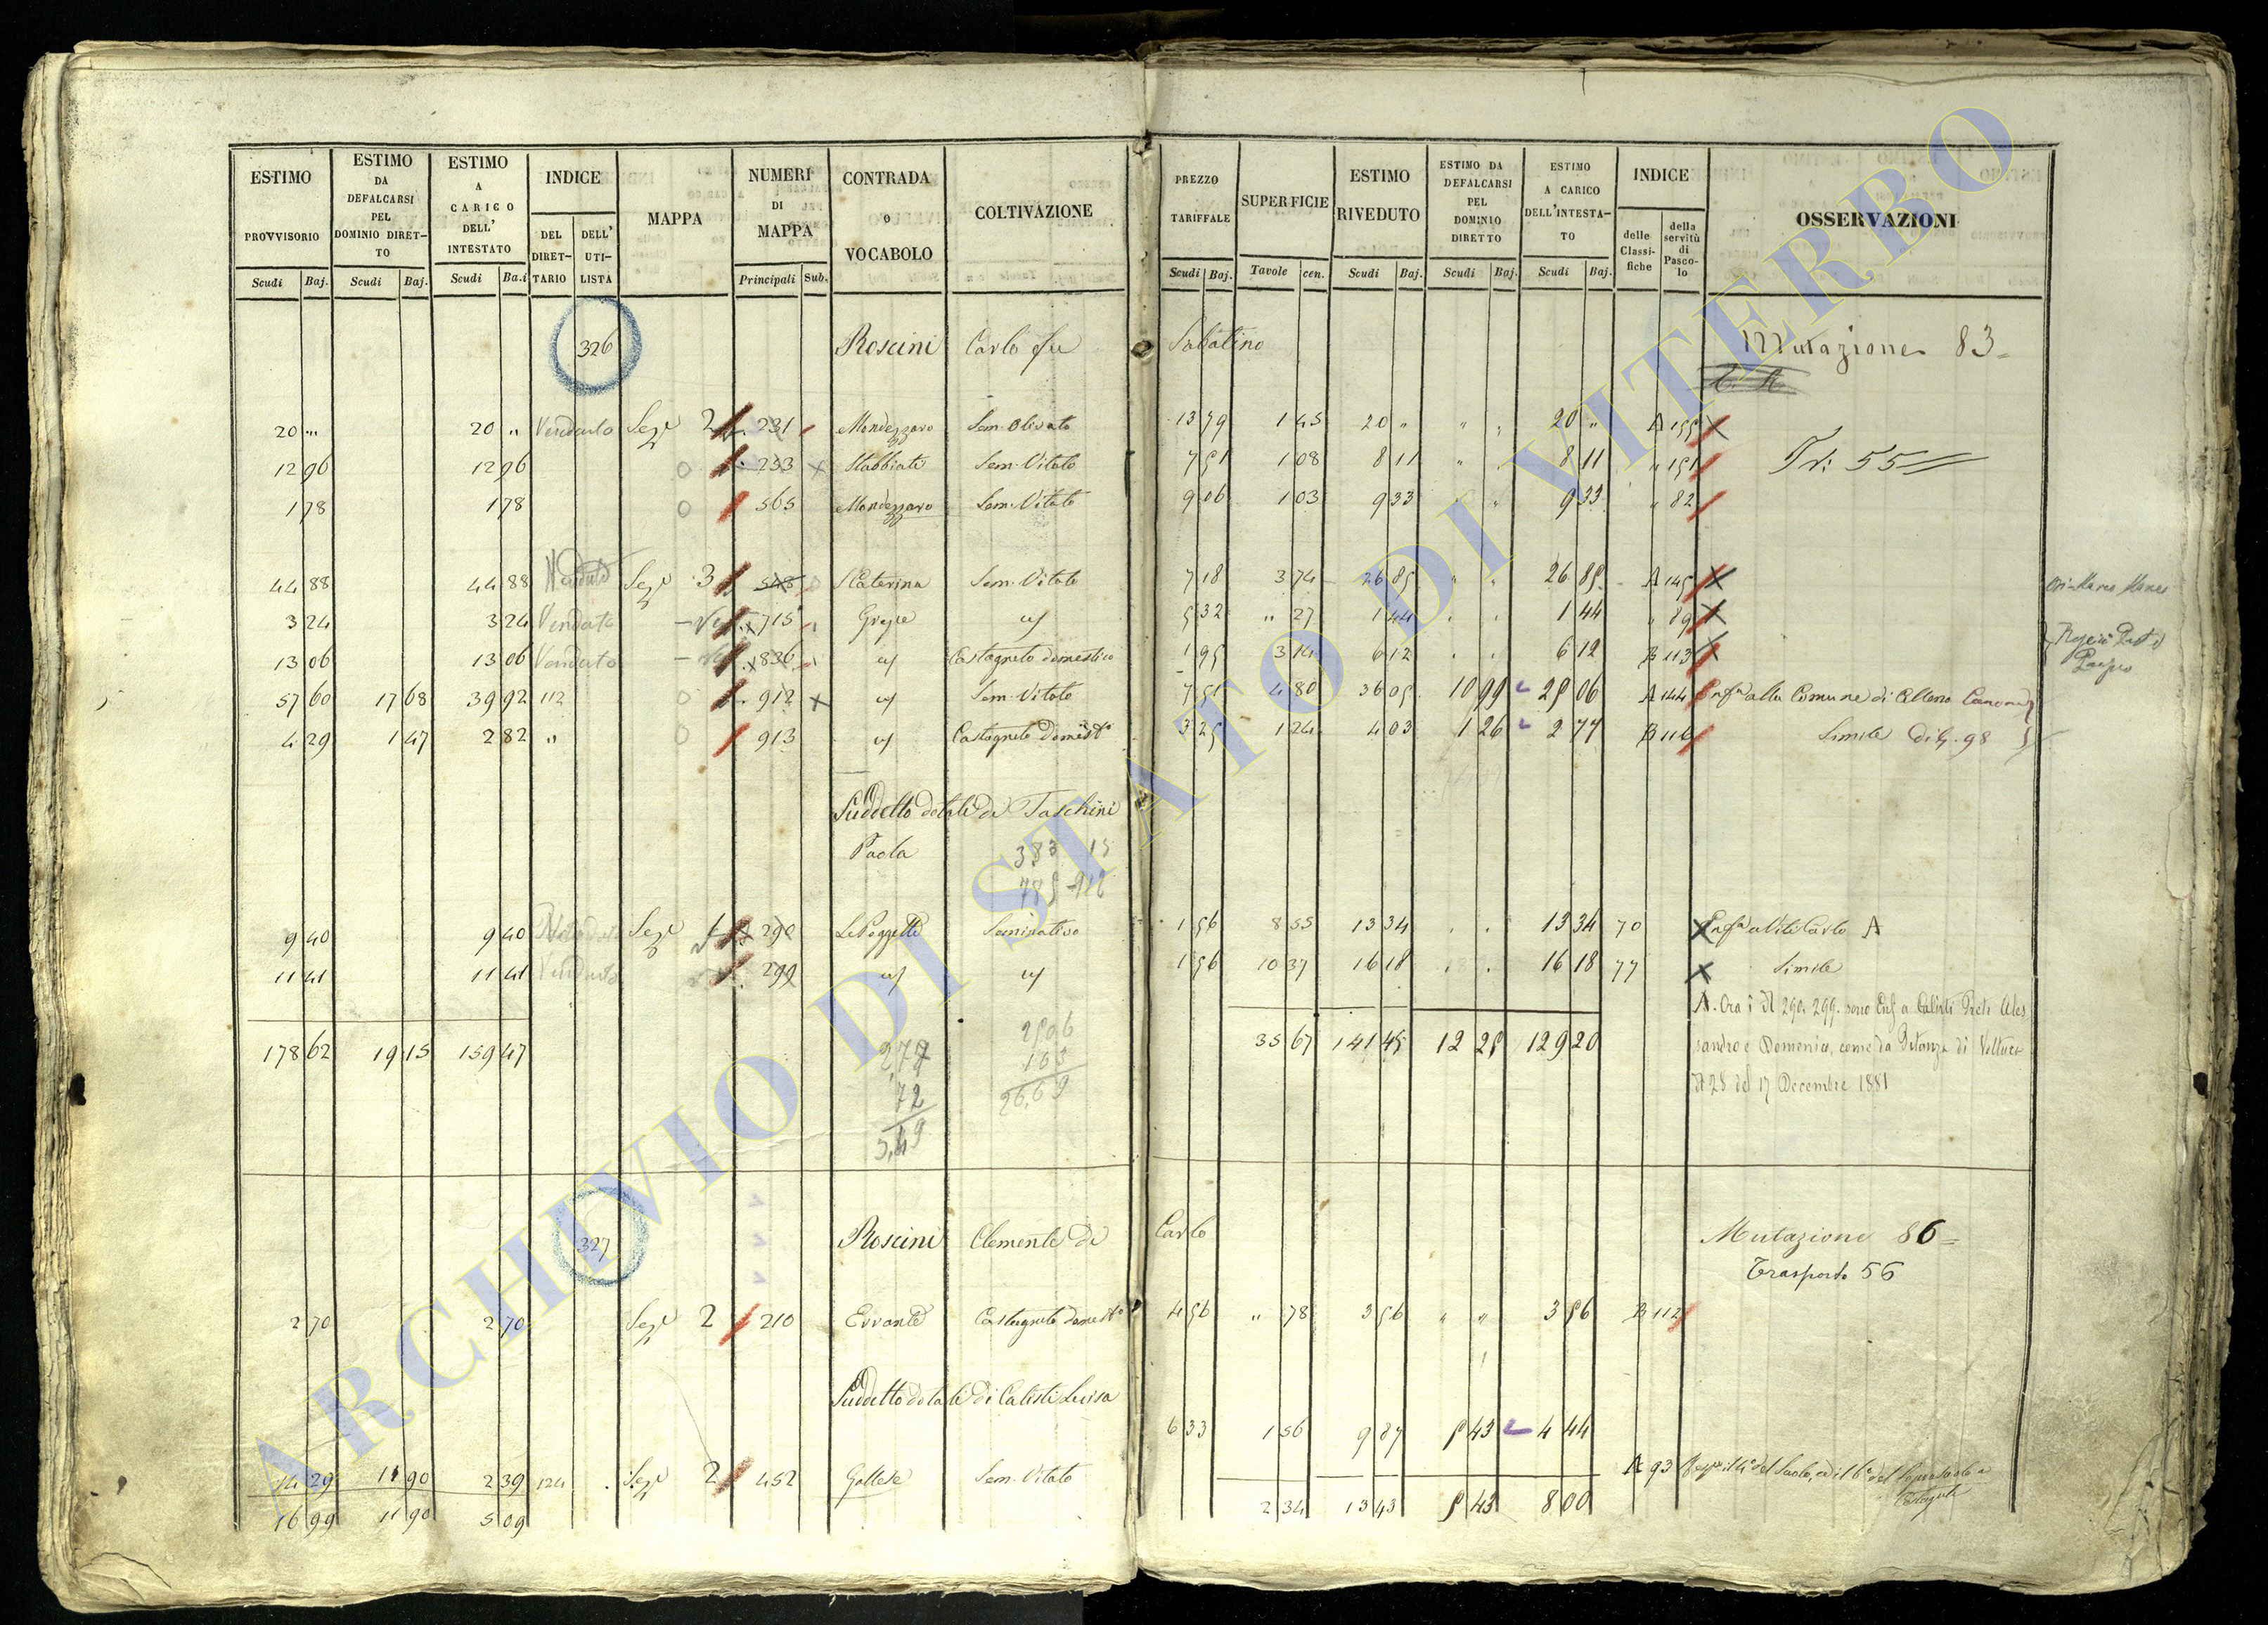 ESTIMO PROVVISORIO Scudi Baj.
ESTIMO DA DEFALCARSI PEL DOMINIO DIRET-TO Scudi Baj.
ESTIMO A CARICO DELL' INTESTATO Scudi Ba.i
INDICE DEL DIRET-TARIO DELL' UTI-LISTA
MAPPA
NUMERI DI MAPPA Principali Sub.
CONTRADA o VOCABOLO
COLTIVAZIONE
PREZZO TARIFFALE Scudi Baj.
SUPERFICIE Tavole cen.
ESTIMO RIVEDUTO Scudi Baj.
ESTIMO DA DEFALCARSI PEL DOMINIO DIRETTO Scudi Baj.
ESTIMO A CARICO DELL'INTESTA-TO Scudi Baj.
INDICE delle Classi-fiche della servitù di Pasco-lo
OSSERVAZIONI
326 Roscini Carlo fu Sabatino Mutazione 83
20 " 20 " Venduto Sez.e 2 231 Mondezzaro Sem. Olivato 13 79 1 45 20 " " " 20 " A 155
Tr: 55
12 96 12 96 233 Stabbiate Sem. Vitato 7 51 1 08 8 11 " 8 11 " 151
1 78 1 78 565 Mondezzaro Sem. Vitato 9 06 1 03 9 33 " 9 33 " 82
44 88 44 88 Venduto Sez.e 3 548 S Caterina Sem. Vitato 7 18 3 74 26 85 " " 26 85 A 145
3 24 3 24 Venduto 715 Greppe 5 32 " 27 1 44 1 44 " 89
13 06 13 06 Venduto 836 Castagneto domestico 1 95 3 14 6 12 6 12 B 113
57 60 17 68 39 92 112 912 Sem. Vitato 7 51 4 80 36 05 10 99 25 06 A 144 alla Comune di Celleno
4 29 1 47 2 82 " 913 Castagneto Domest.o 3 25 1 24 4 03 1 26 2 77 B 116 Simile 98
Suddetto dotale di Taschini
Paola
383 15
9 40 9 40 Sez.e 1 290 Le Poggette Seminativo 1 56 8 55 13 34 13 34 70 a Viti Carlo A
11 41 11 41 Venduto 299 1 56 10 37 16 18 16 18 77 Simile
A. Ora i N 290. 299. sono Enf a Calisti Preti Ales
sandro e Domenico, come da Istanza di
N 28 del 17 Decembre 1881
178 62 19 15 159 47 35 67 141 45 12 25 129 20
2,77
72
3,49
25,06
1 63
26,69
327 Roscini Clemente di Carlo Mutazione 86
Trasporto 56
2 70 2 70 Sez.e 2 210 Errante Castagneto domest.o 4 56 " 78 3 56 " " 3 56 B 112
Suddetto dotale di Calisti Luisa
14 29 11 90 2 39 124 Sez.e 2 452 Gallese Sem. Vitato 6 33 1 56 9 87 5 43 4 44 A 93
16 99 11 90 5 09 2 34 13 43 5 43 8 00
ARCHIVIO DI STATO DI VITERBO